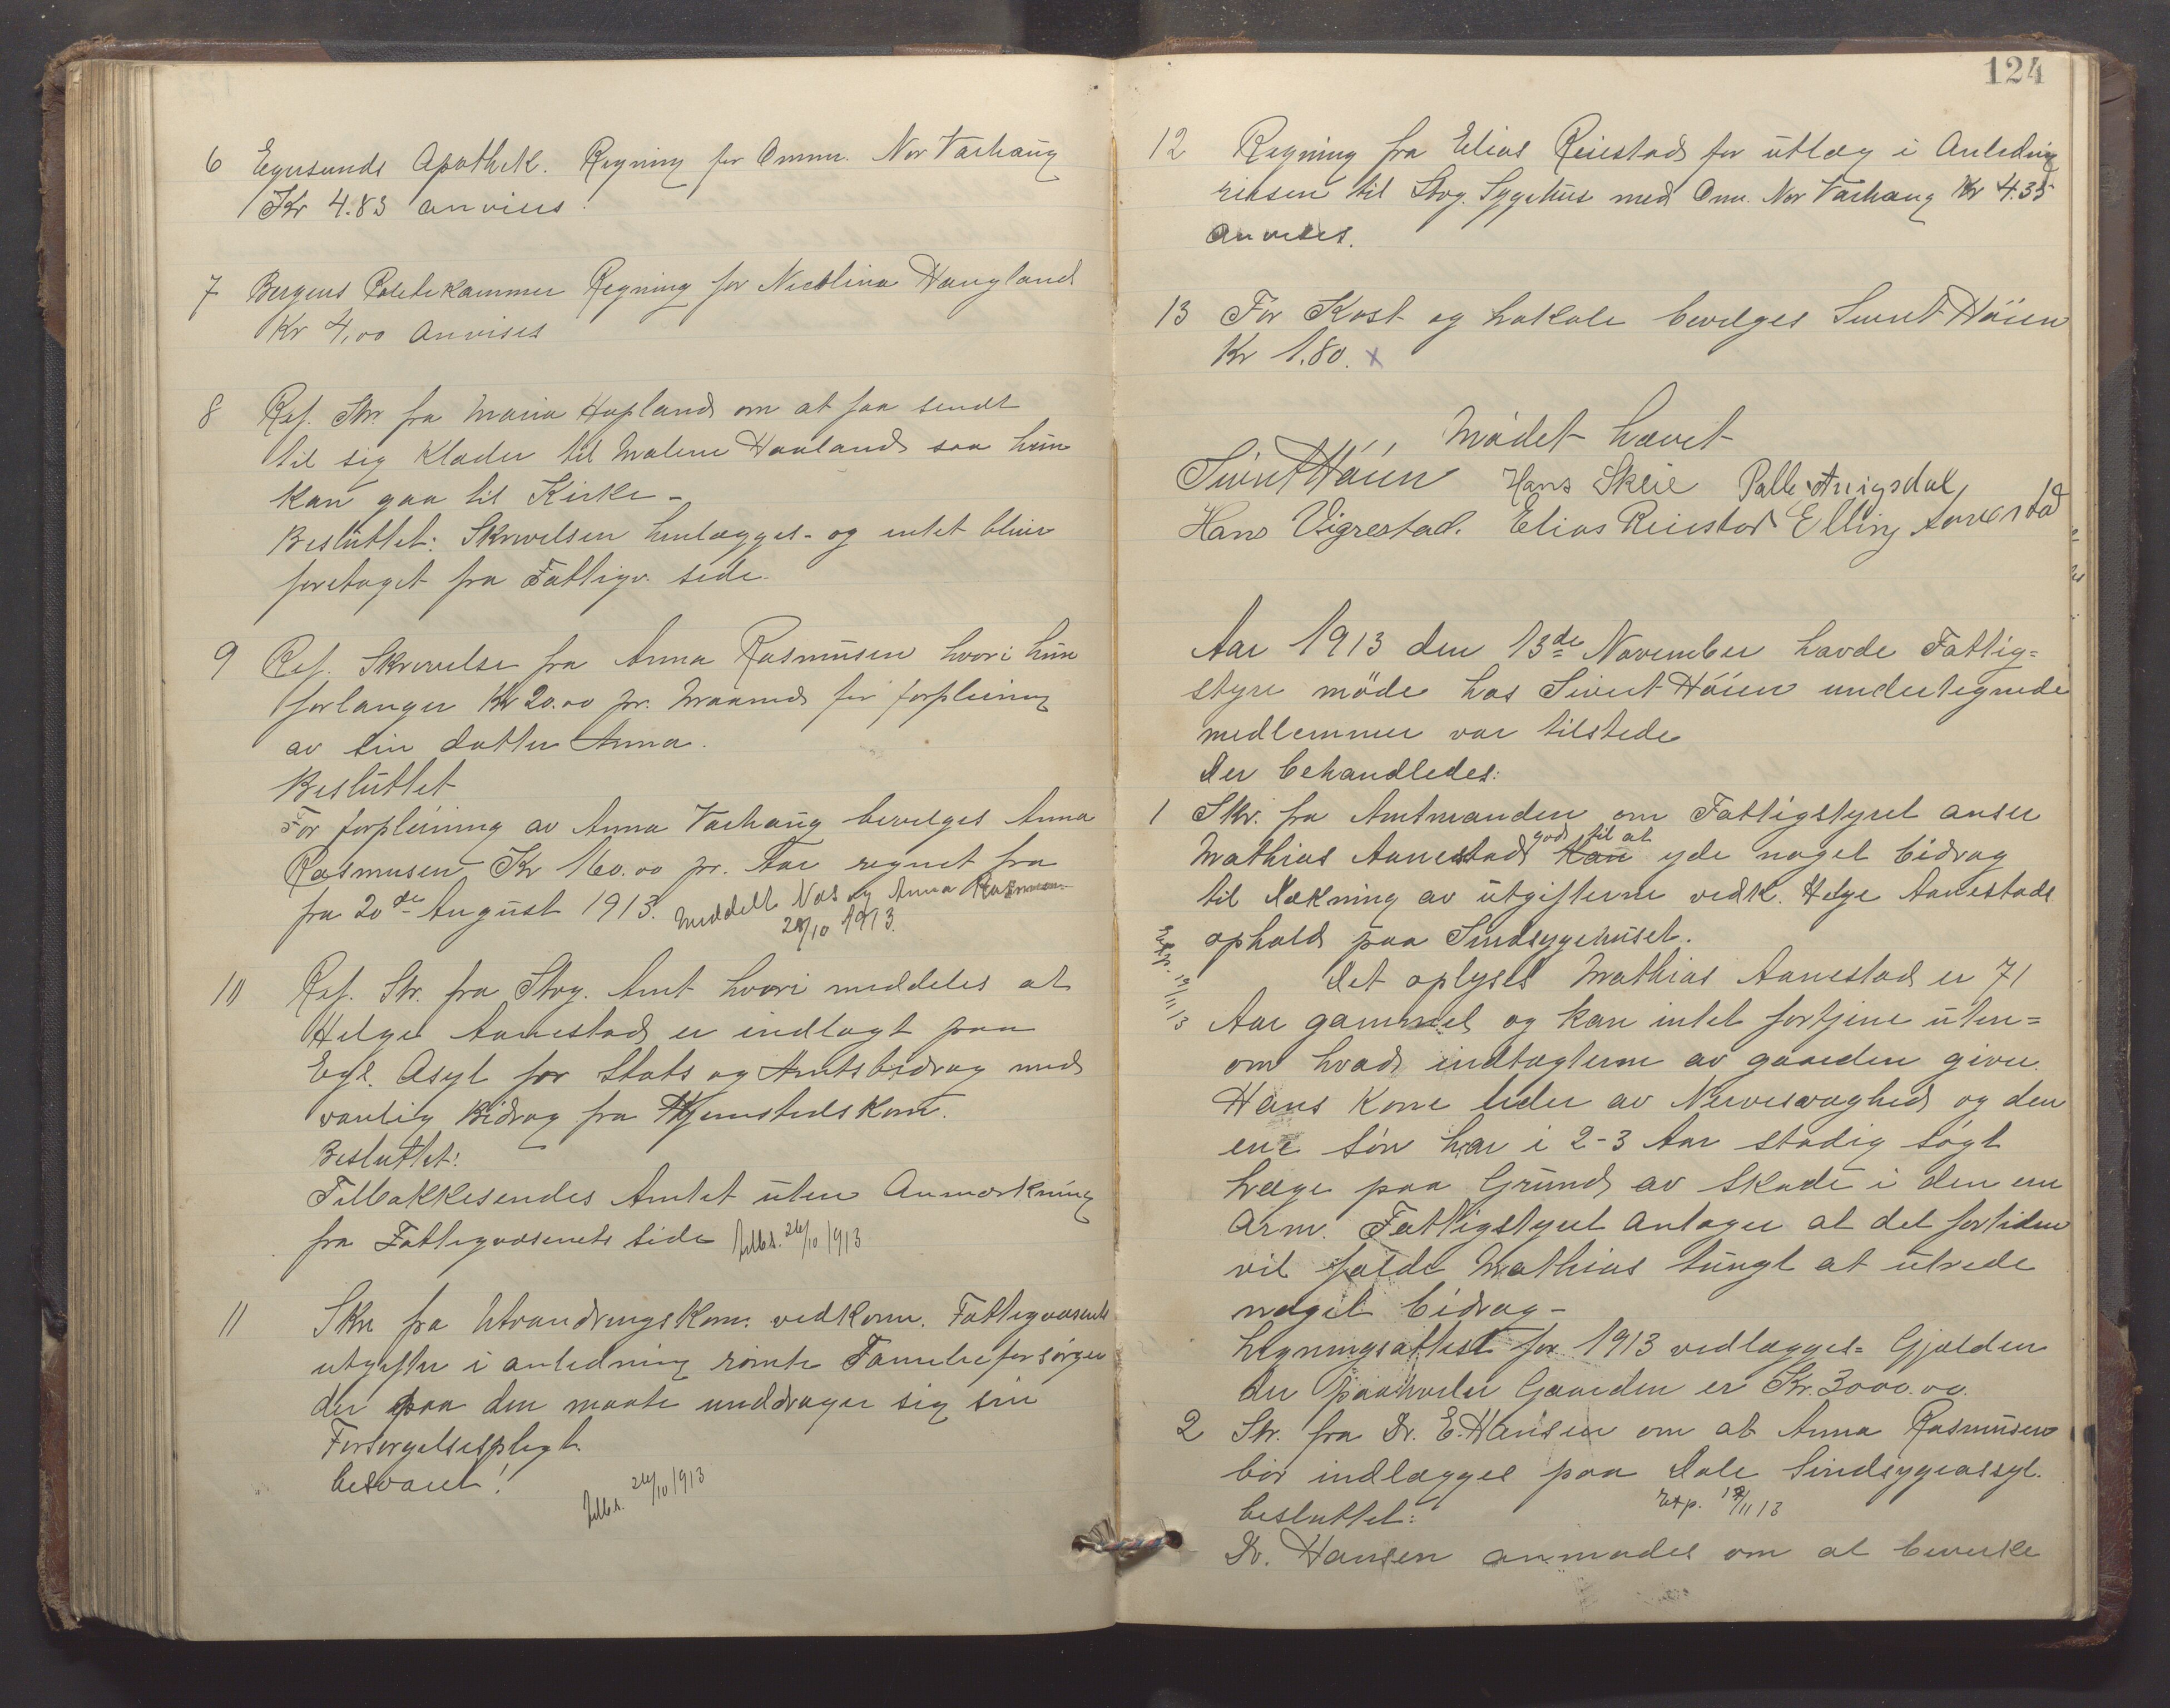 6 Egersunds Apothek. Regning for Omm. Nor Varhaug
Kr 4.83 anvises.
7 Bergens Politikammer Regning for Nicoline Haugland
Kr 4,00 Anvises
8 Ref. Skr. fra Maria Hapland om at faa sendt
til sig Klæder til Malene Haaland saa hun
kan gaa til Kirke -
Besluttet: Skrivelsen henlægges - og intet bliver
foretaget fra Fattigv. side.
9 Ref. Skrivelse fra Anna Rasmusen hvori hun
forlanger Kr 20.00 pr. Maaned for forpleining
av sin datter Anna.
Besluttet
For forpleining av Anna Varhaug bevilges Anna
Rasmusen Kr 160.00 pr. Aar regnet fra
fra 20de August 1913. Meddelt Næs og Anna Rasmusen
28/10 1913.
10 Ref. Skr. fra Stvg. Amt hvori meddeles at
Helge Aanestad er indlagt paa
Egl. Asyl for Stats og Amtsbidrag med
vanlig Bidrag fra Hjemstedskom.
Besluttet:
Tilbakkesendes Amtet uten Anmærkning
fra Fattigvæsenets side tilbs. 26/10 1913
11 Skr fra Utvandringskom. vedkom. Fattigvæsenets
utgifter i anledning rømte Familieforsørger
der paa den maate unddrager sig sin
Forsørgelsespligt.
besvaret!
tilbs. 26/10 1913
124
12 Regning fra Elias Reiestad for utlæg i Anledning
reisen til Stvg. Sygehus med Omm. Nor Varhaug Kr 4.35
anvises.
13 For Kost og Lokale bevilges Sivert Høien
Kr 1.80. x
Mødet hævet
Sivert Høien Hans Skeie Palle Anigsdal,
Hans Vigrestad. Elias Reiestad Elling Aanestad
Aar 1913 den 13de November havde Fattig=
styre møde hos Sivert Høien undertegnede
medlemmer var tilstede
Der behandledes:
1 Skr. fra Amtmanden om Fattigstyret anser
god til at
Mathias Aanestad kan yde noget bidrag
til Dækning av utgifterne vedk. Helge Aanestads
ophold paa Sindsygehuset.
Exp. 19/11 13
Det oplyses Mathias Aanestad er 71
Aar gammel og kan intet fortjene uten=
om hvad indtægterne av gaarden giver.
Hans Kone lider av Nervesvaghed og den
ene søn har i 2-3 Aar stadig søgt
Læge paa Grund av Skade i den ene
Arm. Fattigstyret Antager at det fortiden
vil falde Mathias tungt at utrede
noget bidrag -
Ligningsattest for 1913 vedlægges= Gjælden
der paahviler Gaarden er Kr. 3000.00.
2 Skr. fra Dr. E. Hansen om at Anna Rasmusen
bør indlægges paa Dale Sindsygeassyl.
besluttet: Exp. 19/11 13
Dr. Hansen anmodes om at bevirke